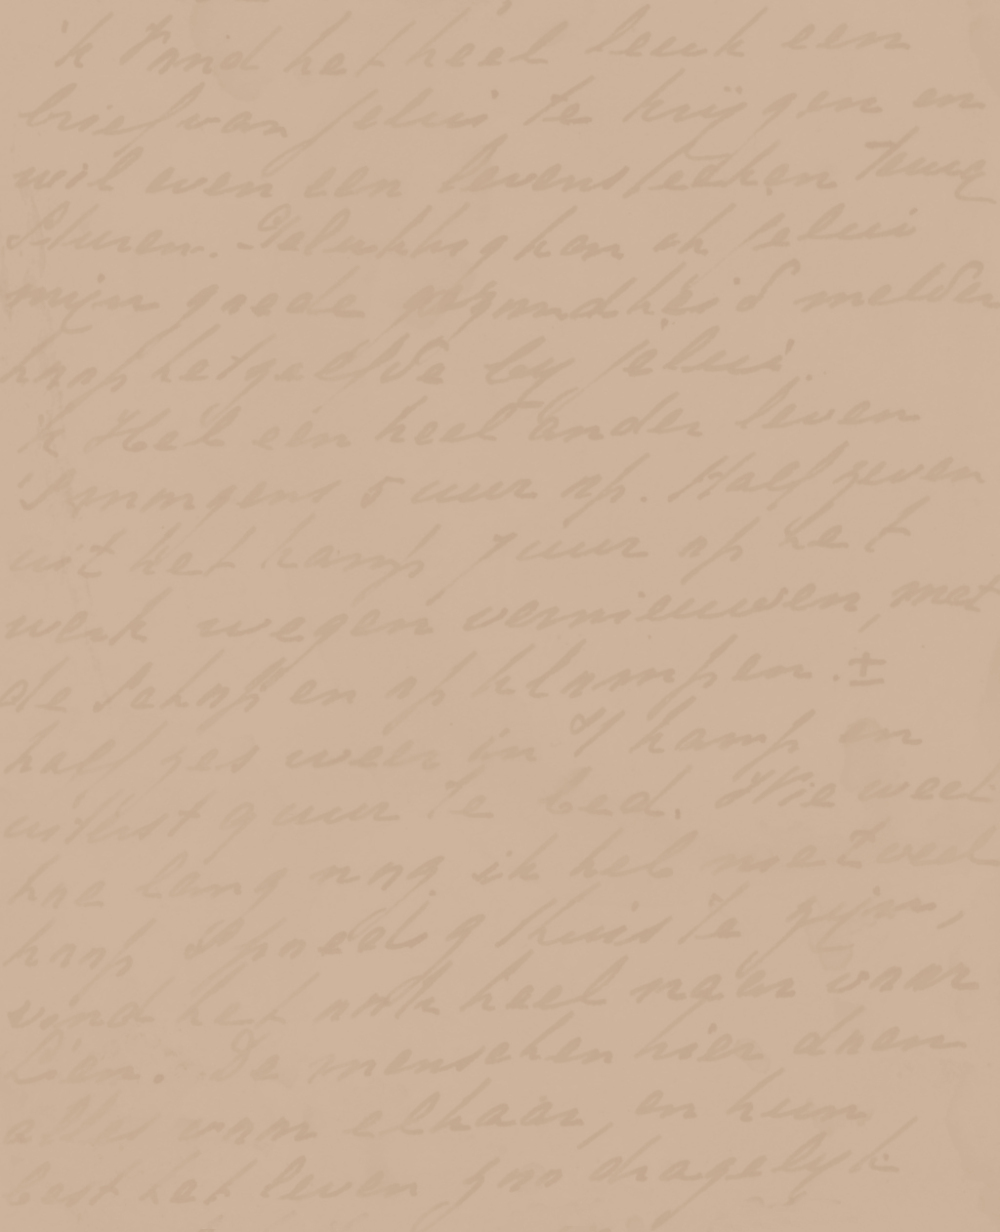 'k Vind het heel leuk een
brief van jelui te krijgen en
wil even een levensteeken terug
sturen. Gelukkig kan ik jelui
mijn goede gezondheid melden
hoop hetzelfde by jelui.
'k Heb een heel ander leven
'S morgens 5 uur op. Half zeven
uit het kamp 7 uur op het
werk wegen vernieuwen, met
de schop en op klompen. ±
half zes weer in 't kamp en
uiterst 9 uur te bed. Wie weet
hoe lang nog ik hel
hoop spoedig thuis te zijn,
vind het ook heel naar voor
Lien. De menschen hier doen
alles voor elkaar, en hun
best het leven zoo dragelyk